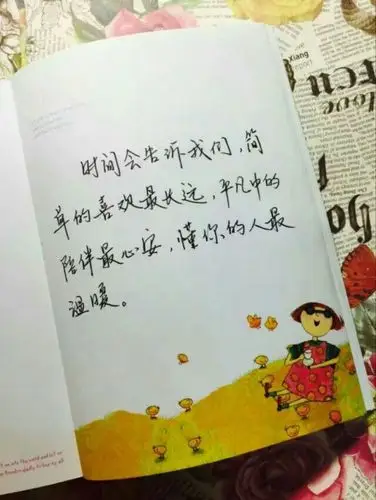 时间会告诉我们,简
单的喜欢最长远,平凡中的
陪伴最心安,懂你的人最
温暖。
Xiang
report
love